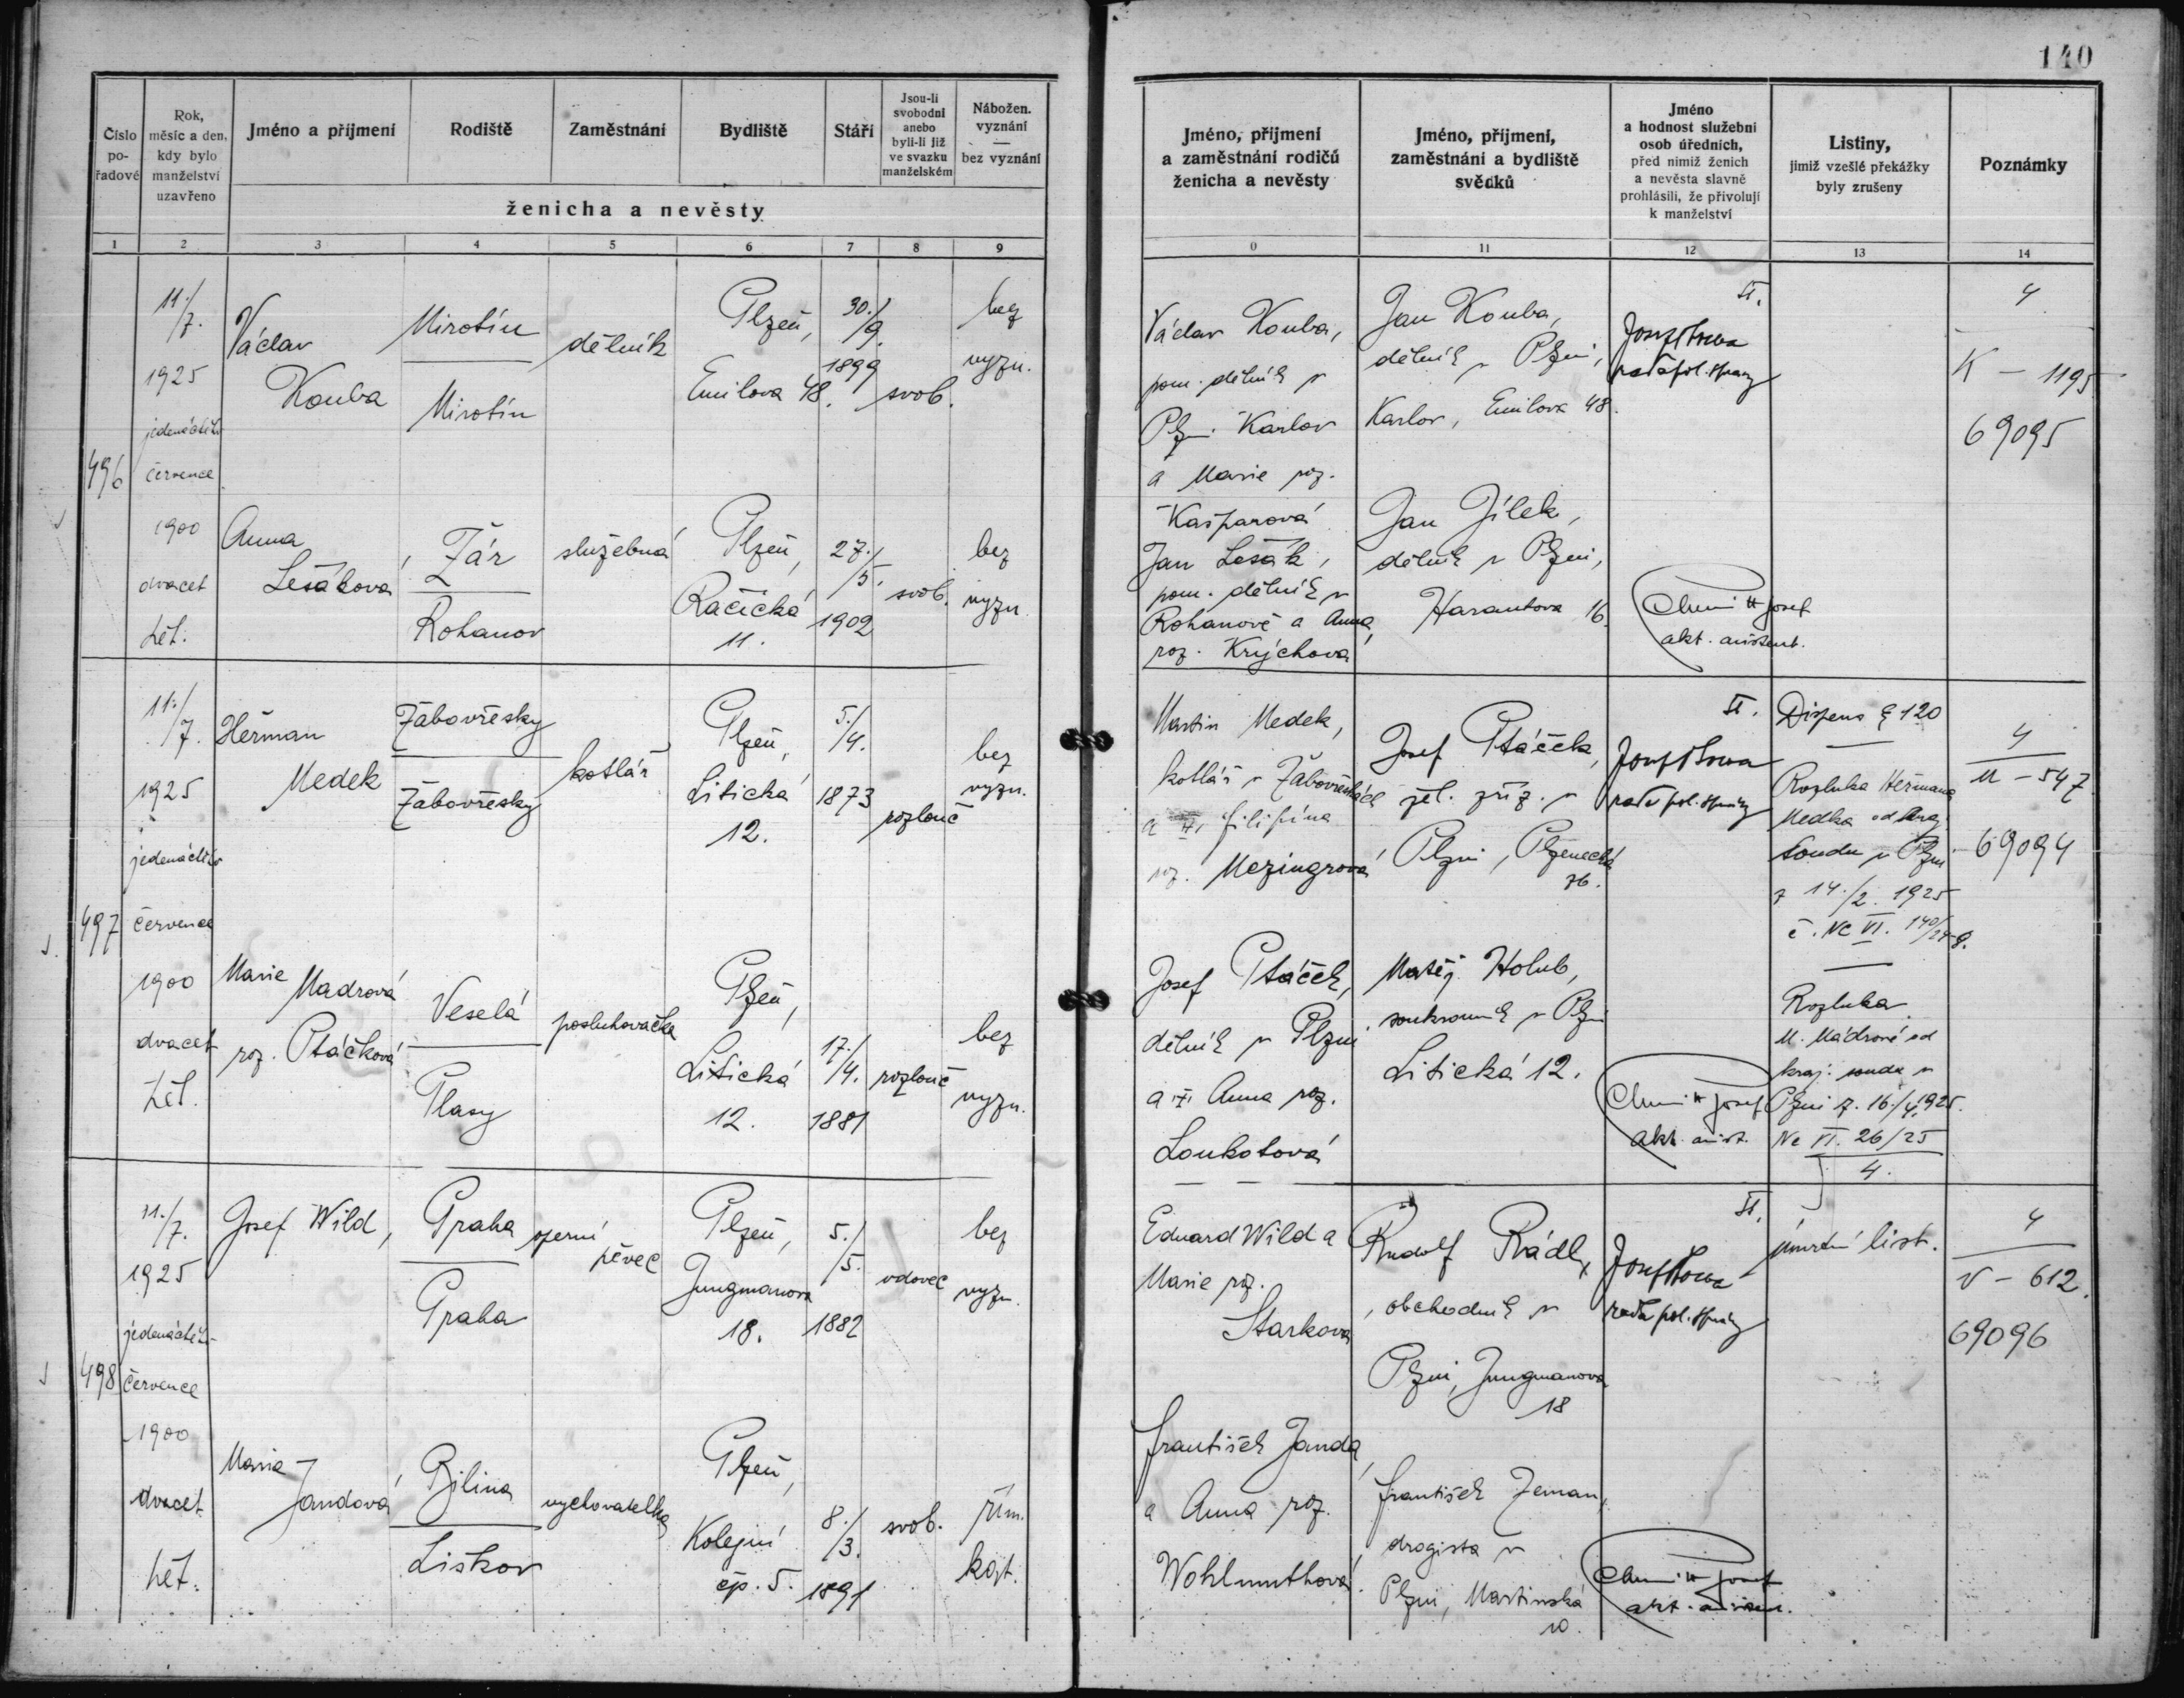 140
Číslo
po-
řadové
Rok,
měsíc a den,
kdy bylo
manželství
uzavřeno
Jméno a příjmení
Rodiště
Zaměstnání
Bydliště
Stáří
Jsou-li
svobodni
anebo
byli-li již
ve svazku
manželském
Nábožen.
vyznání
—
bez vyznání
ženicha a nevěsty
1 2 3 4 5 6 7 8 9
Jméno, příjmení
a zaměstnání rodičů
ženicha a nevěsty
Jméno, příjmení,
zaměstnání a bydliště
svědků
Jméno
a hodnost služební
osob úředních,
před nimiž ženich
a nevěsta slavně
prohlásili, že přivolují
k manželství
Listiny,
jimiž vzešlé překážky
byly zrušeny
Poznámky
0 11 12 13 14
496
11./7.
1925
jedenáctého
července
1900
dvacet
pět.
Václav
Kouba
Mirotín
Mirotín
dělník
Plzeň,
Emilova 48.
30./9.
1899
svob.
bez
vyzn.
Anna
Lešáková
Žár
Rohanov
služebná
Plzeň,
Račická
11.
27./5.
1902
svob.
bez
vyzn.
Václav Kouba,
pom. dělník v
Plzni Karlov
a Marie roz.
Kašparová
Jan Lešák,
pom. dělník v
Rohanově a Anna,
roz. Krýchová
Jan Kouba,
dělník v Plzni,
Karlov, Emilova 48.
Jan Jílek,
dělník v Plzni,
Harantova 16.
II.
Josef
rada pol. správy
Josef
akt. asistent.
4
K – 1195
69095
497
11./7.
1925
jedenáctého
července
1900
dvacet
pět.
Heřman
Medek
Žabovřesky
Žabovřesky
kotlář
Plzeň,
Litická
12.
5./4.
1873
rozlouč
bez
vyzn.
Marie
Madrová
roz. Ptáčková
Veselá
Plasy
posluhovačka
Plzeň,
Litická
12.
17./4.
1881
rozlouč
bez
vyzn.
Martin Medek,
kotlář v Žabovřeskách
a Filipína
roz. Mezingrová
Josef Ptáček,
dělník v Plzni
a Anna roz.
Loukotová
Josef Ptáček,
žel. zříz. v
Plzni, Plzenecká
76.
Matěj Holub,
soukromník v Plzni
Litická 12.
II.
Josef
rada pol. správy
Josef
akt. asist.
Dispens § 120
Rozluka Heřmana
Medka od kraj.
soudu v Plzni
z 14./2. 1925
č. Nc VI. 140/24-8.
Rozluka
M. Mádrové od
kraj. soudu v
Plzni z. 16./4. 1925.
Nc VI. 26/25
4.
4
M – 547
69094
498
11./7.
1925
jedenáctého
července
1900
dvacet
pět.
Josef Wild,
Praha
Praha
operní
pěvec
Plzeň,
Jungmanova
18.
5./5.
1882
vdovec
bez
vyzn.
Marie
Jandová
Bilina
Liškov
vychovatelka
Plzeň,
Kolejní
čp. 5.
8./3.
1891
svob.
řím.
kat.
Eduard Wild a
Marie roz.
Starkova
František Janda
a Anna roz.
Wohlmuthová.
Rudolf Rádl,
obchodník v
Plzni, Jungmanova
18
František Zeman,
drogista v
Plzni, Martinská
10.
II.
Josef
rada pol. správy
Josef
akt. asistent.
úmrtní list.
4
V – 612.
69096